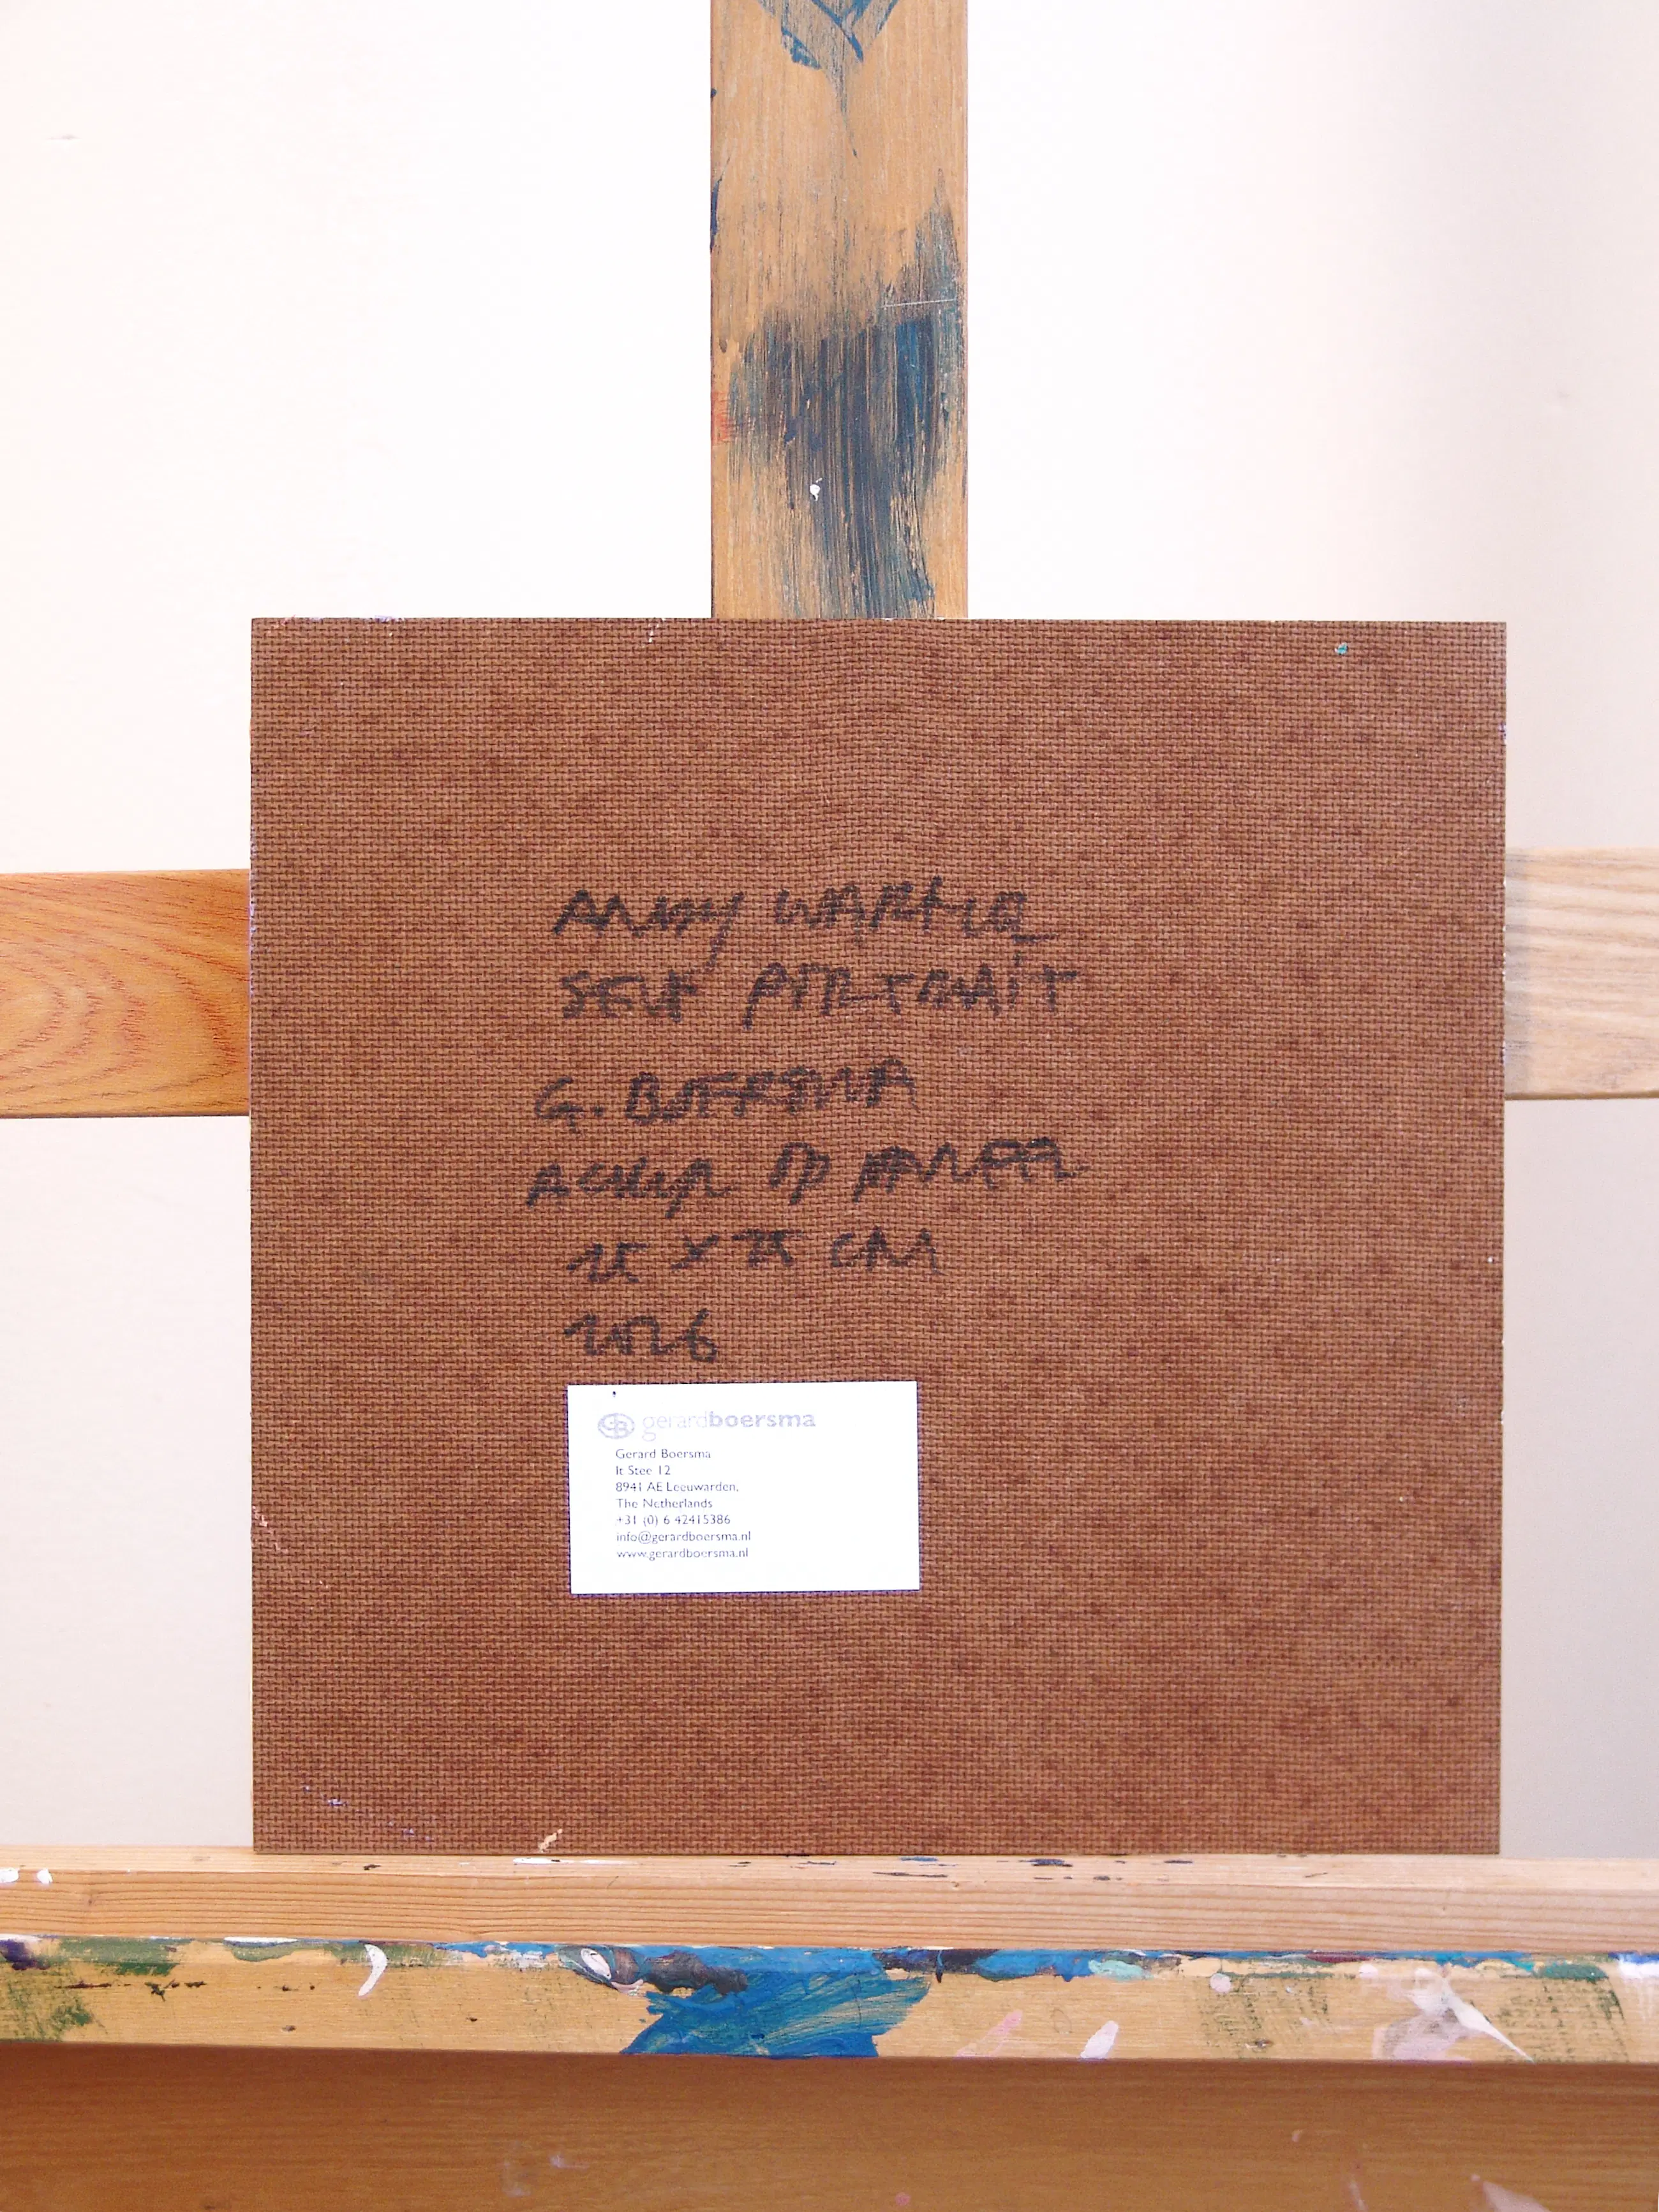 ANDY WARHOL
SELF PORTRAIT
G. BOERSMA
ACRYL OP PANEEL
25 X 25 CM
2026
GB gerardboersma
Gerard Boersma
It Stee 12
8941 AE Leeuwarden,
The Netherlands
+31 (0) 6 42415386
info@gerardboersma.nl
www.gerardboersma.nl